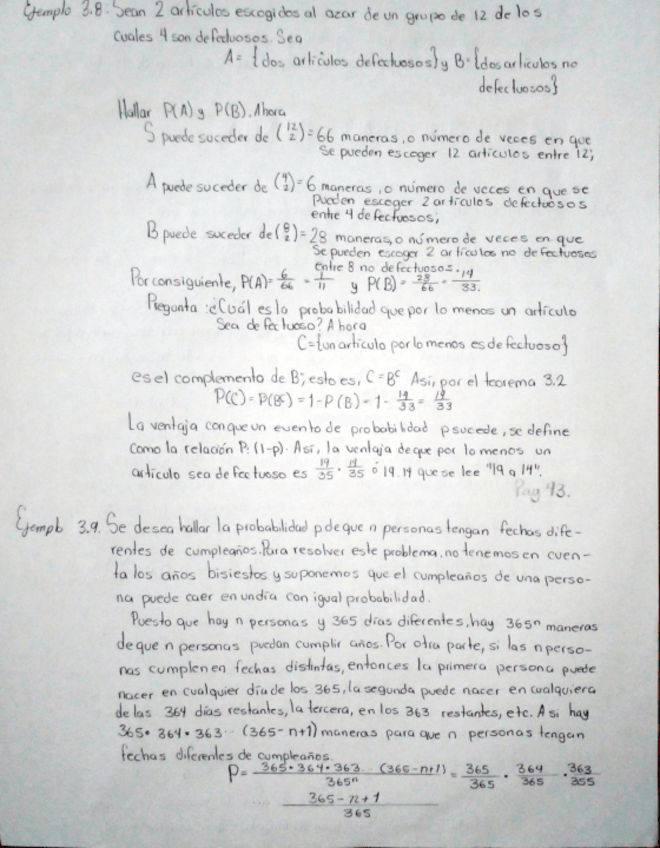 Ejemplo 3.8. Sean 2 artículos escogidos al azar de un grupo de 12 de los
cuales 4 son defectuosos. Sea
A = {dos artículos defectuosos} y B = {dos artículos no
defectuosos}
Hallar P(A) y P(B). Ahora
S puede suceder de (12 2) = 66 maneras, o número de veces en que
se pueden escoger 12 artículos entre 12;
A puede suceder de (4 2) = 6 maneras, o número de veces en que se
pueden escoger 2 artículos defectuosos
entre 4 defectuosos;
B puede suceder de (8 2) = 28 maneras, o número de veces en que
se pueden escoger 2 artículos no defectuosos
entre 8 no defectuosos.
Por consiguiente, P(A) = 6/66 = 1/11 y P(B) = 28/66 = 14/33.
Pregunta: ¿Cuál es la probabilidad que por lo menos un artículo
sea defectuoso? Ahora
C = {un artículo por lo menos es defectuoso}
es el complemento de B; esto es, C = Bᶜ Así, por el teorema 3.2
P(C) = P(Bᶜ) = 1 - P(B) = 1 - 14/33 = 19/33
La ventaja con que un evento de probabilidad p sucede, se define
como la relación P: (1-p). Así, la ventaja de que por lo menos un
artículo sea defectuoso es 19/35 · 14/35 ó 19.14 que se lee "19 a 14".
Pag 43.
Ejemplo 3.9. Se desea hallar la probabilidad p de que n personas tengan fechas dife-
rentes de cumpleaños. Para resolver este problema, no tenemos en cuen-
ta los años bisiestos y suponemos que el cumpleaños de una perso-
na puede caer en un día con igual probabilidad.
Puesto que hay n personas y 365 días diferentes, hay 365ⁿ maneras
de que n personas puedan cumplir años. Por otra parte, si las n perso-
nas cumplen en fechas distintas, entonces la primera persona puede
nacer en cualquier día de los 365, la segunda puede nacer en cualquiera
de las 364 días restantes, la tercera, en los 363 restantes, etc. Así hay
365 · 364 · 363 ··· (365-n+1) maneras para que n personas tengan
fechas diferentes de cumpleaños.
P = 365 · 364 · 363 ... (365-n+1) / 365ⁿ = 365/365 · 364/365 · 363/355
365-n+1 / 365